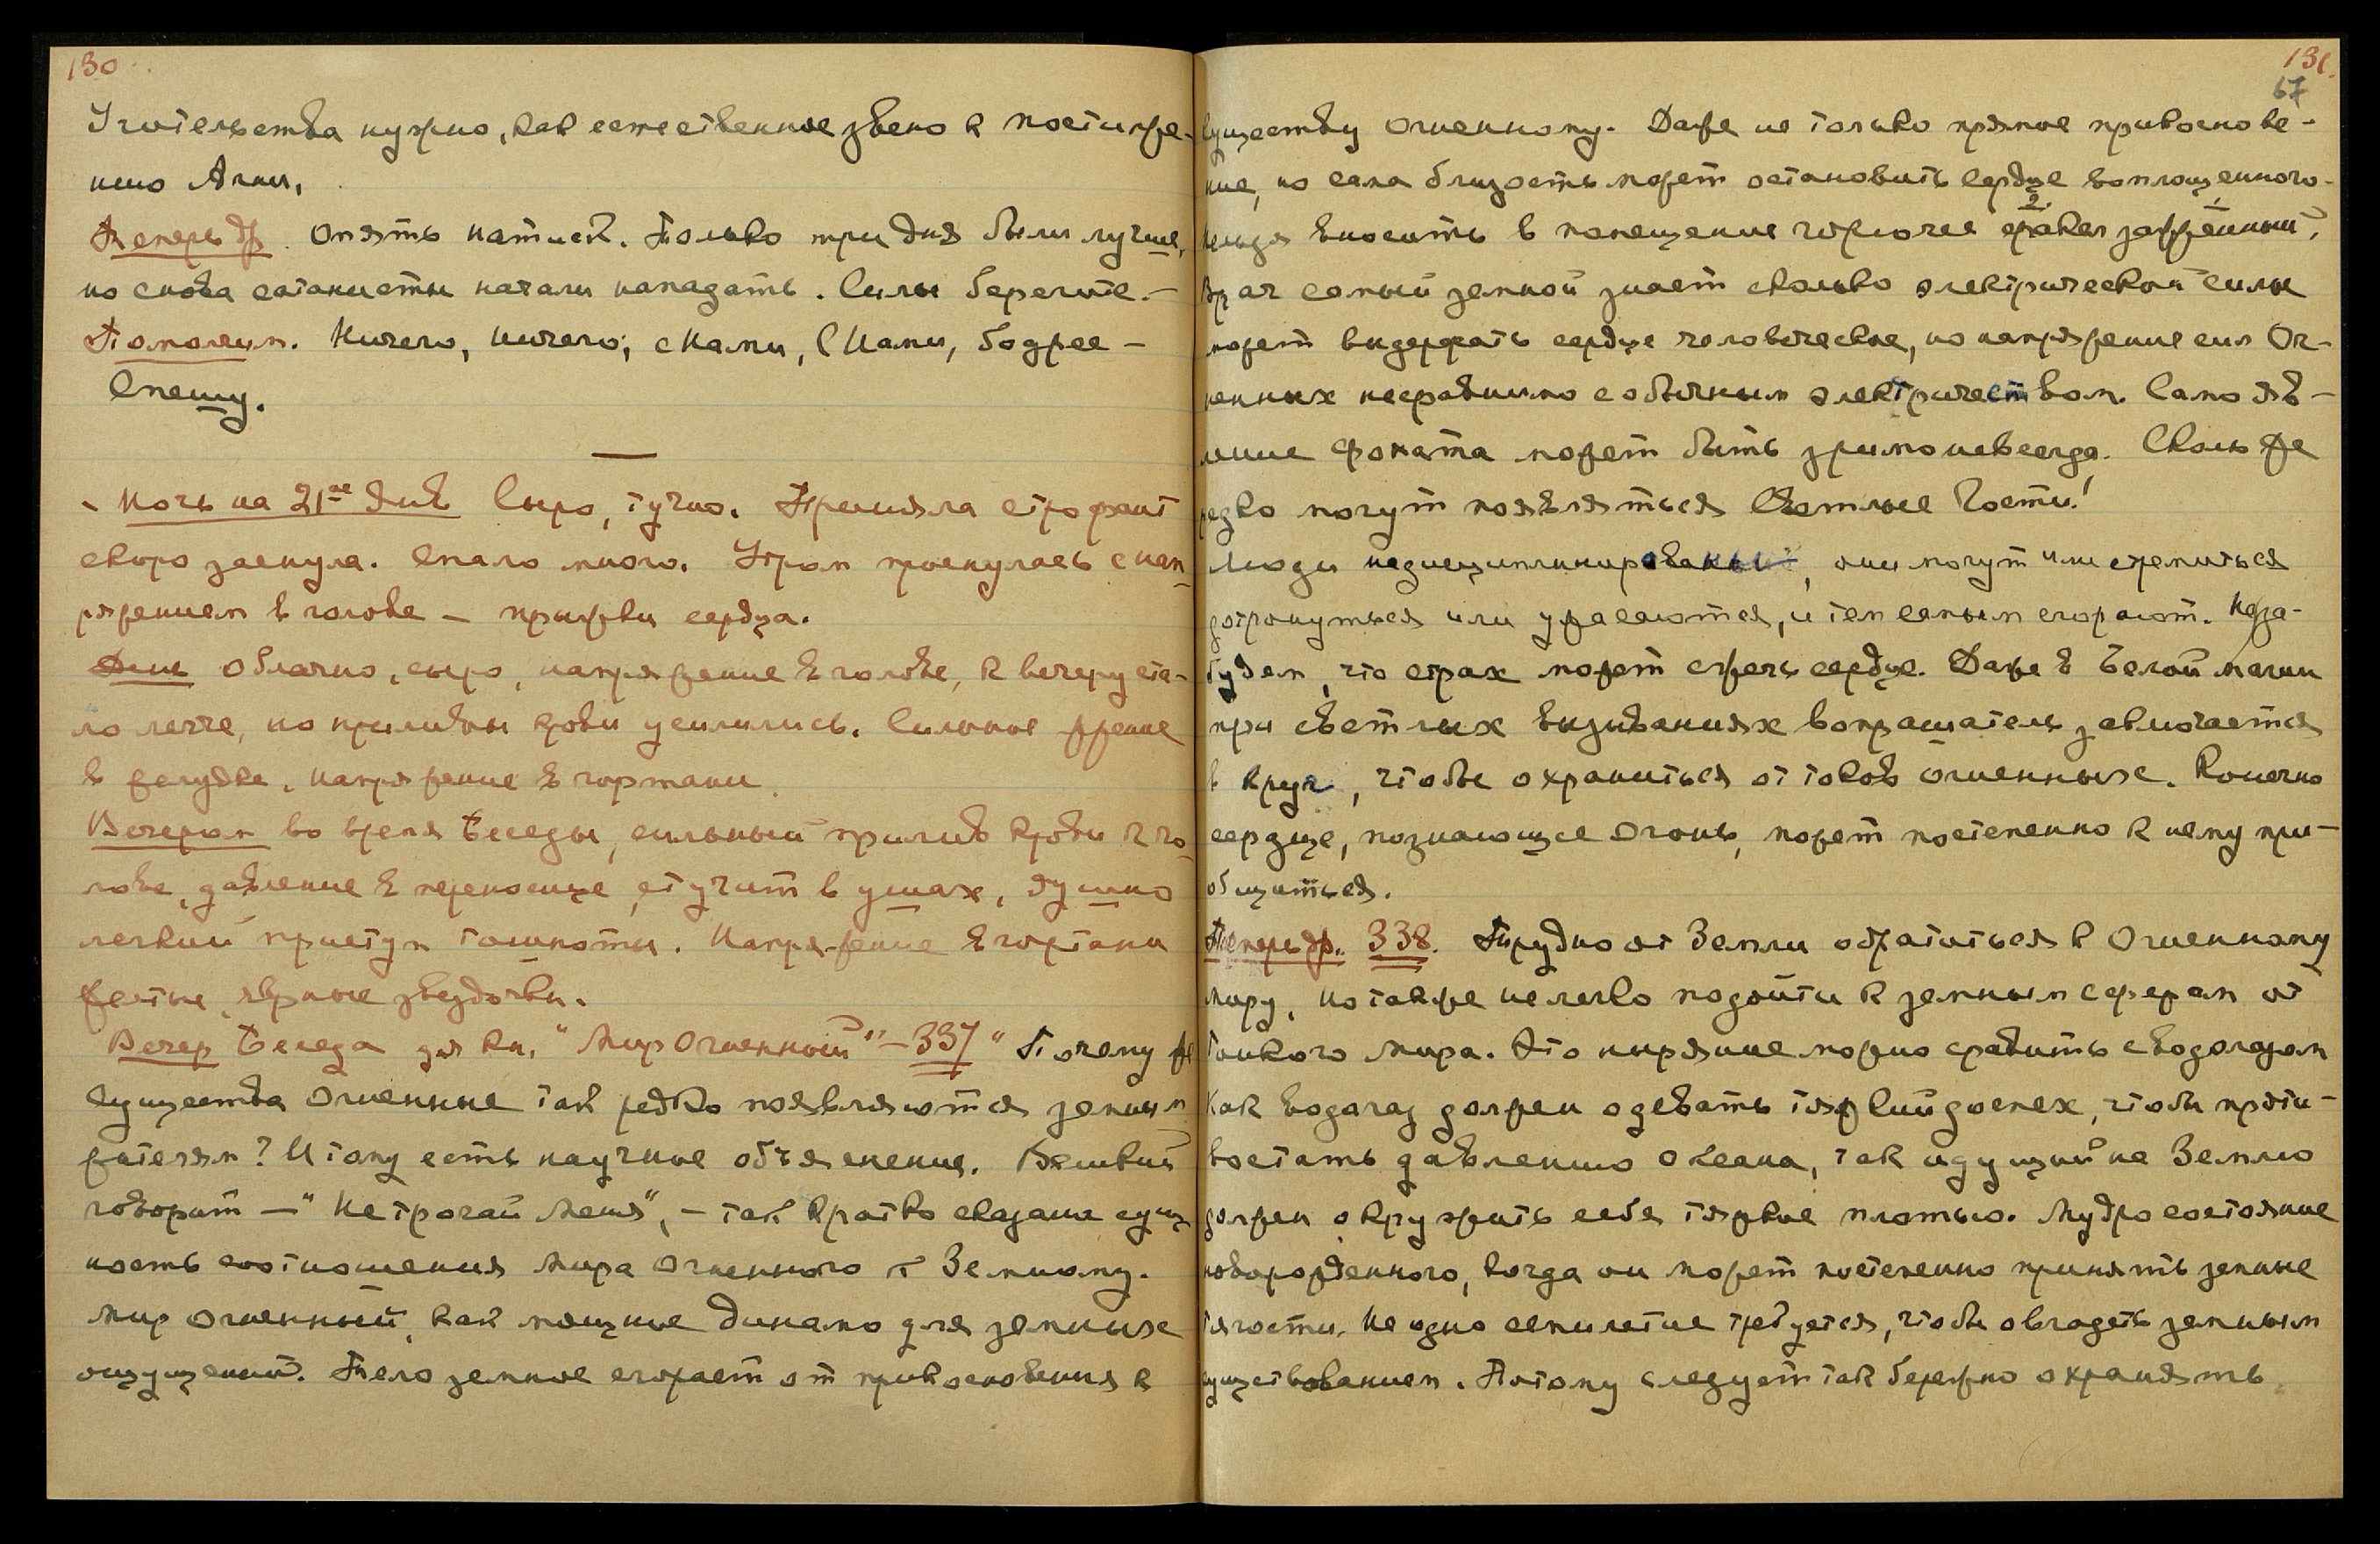 130
Учительства нужно, как естественное звено к постиже-
нию Агни.
Теперь др. Опять натиск. Только три дня были лучше,
но снова сатанисты начали нападать. Силы берегите. —
Помолчим. Ничего, ничего, с Нами, с Нами, бодрее —
Спешу.
Ночь на 21ое Янв Сыро, тучно. Приняла строфант
скоро заснула. Спала много. Утром проснулась с нап-
ряжением в голове — приливы сердца.
Днем облачно, сыро, напряжение в голове, к вечеру ста-
ло легче, но приливы крови усилились. Сильное жжение
в желудке, напряжение в гортани.
Вечером во время Беседы, сильный прилив крови к го-
лове, давление в переносице, стучит в ушах, душно
легкий приступ тошноты. Напряжение в гортани
желтые, черные звездочки.
Вечер Беседа для кн. "Мир Огненный" — 337 "Почему же
Существа Огненные так редко появляются земным
жителям? И тому есть научное объяснение. Великий
говорит — "Не трогай Меня", — так кратко сказана сущ-
ность соотношения Мира Огненного к Земному.
Мир Огненный, как мощное динамо для земных
ощущений. Тело земное сгорает от прикосновения к
131.
67
Существу Огненному. Даже не только прямое прикоснове-
ние, но сама близость может остановить сердце воплощенного.
Нельзя вносить в помещение горючее факел зажженный,
Врач самый земной знает сколько электрической силы
может выдержать сердце человеческое, но напряжение сил Ог-
ненных несравнимо с обычным электричеством. Само яв-
ление Фохата может быть зримо не всегда. Сколь же
редко могут появляться Светлые Гости!
Люди недисциплинированы, они могут или стремиться
дотронуться или ужасаются, и тем самым сгорают. Не за-
будем, что страх может сжечь сердце. Даже в Белой магии
при светлых вызываниях вопрошатель заключается
в круг, чтобы охраниться от токов огненных. Конечно
сердце, познающее Огонь, может постепенно к нему при-
общиться.
Теперь др. 338. Трудно от Земли обратиться к Огненному
Миру, но также нелегко подойти к земным сферам от
Тонкого Мира. Это ныряние можно сравнить с водолазом
Как водолаз должен одевать тяжкий доспех, чтобы проти-
востать давлению океана, так идущий на Землю
должен окружить себя тяжкою плотью. Мудро состояние
новорожденного, когда он может постепенно принять земные
тягости. Не одно семилетие требуется, чтобы овладеть земным
существованием. Потому следует так бережно охранять